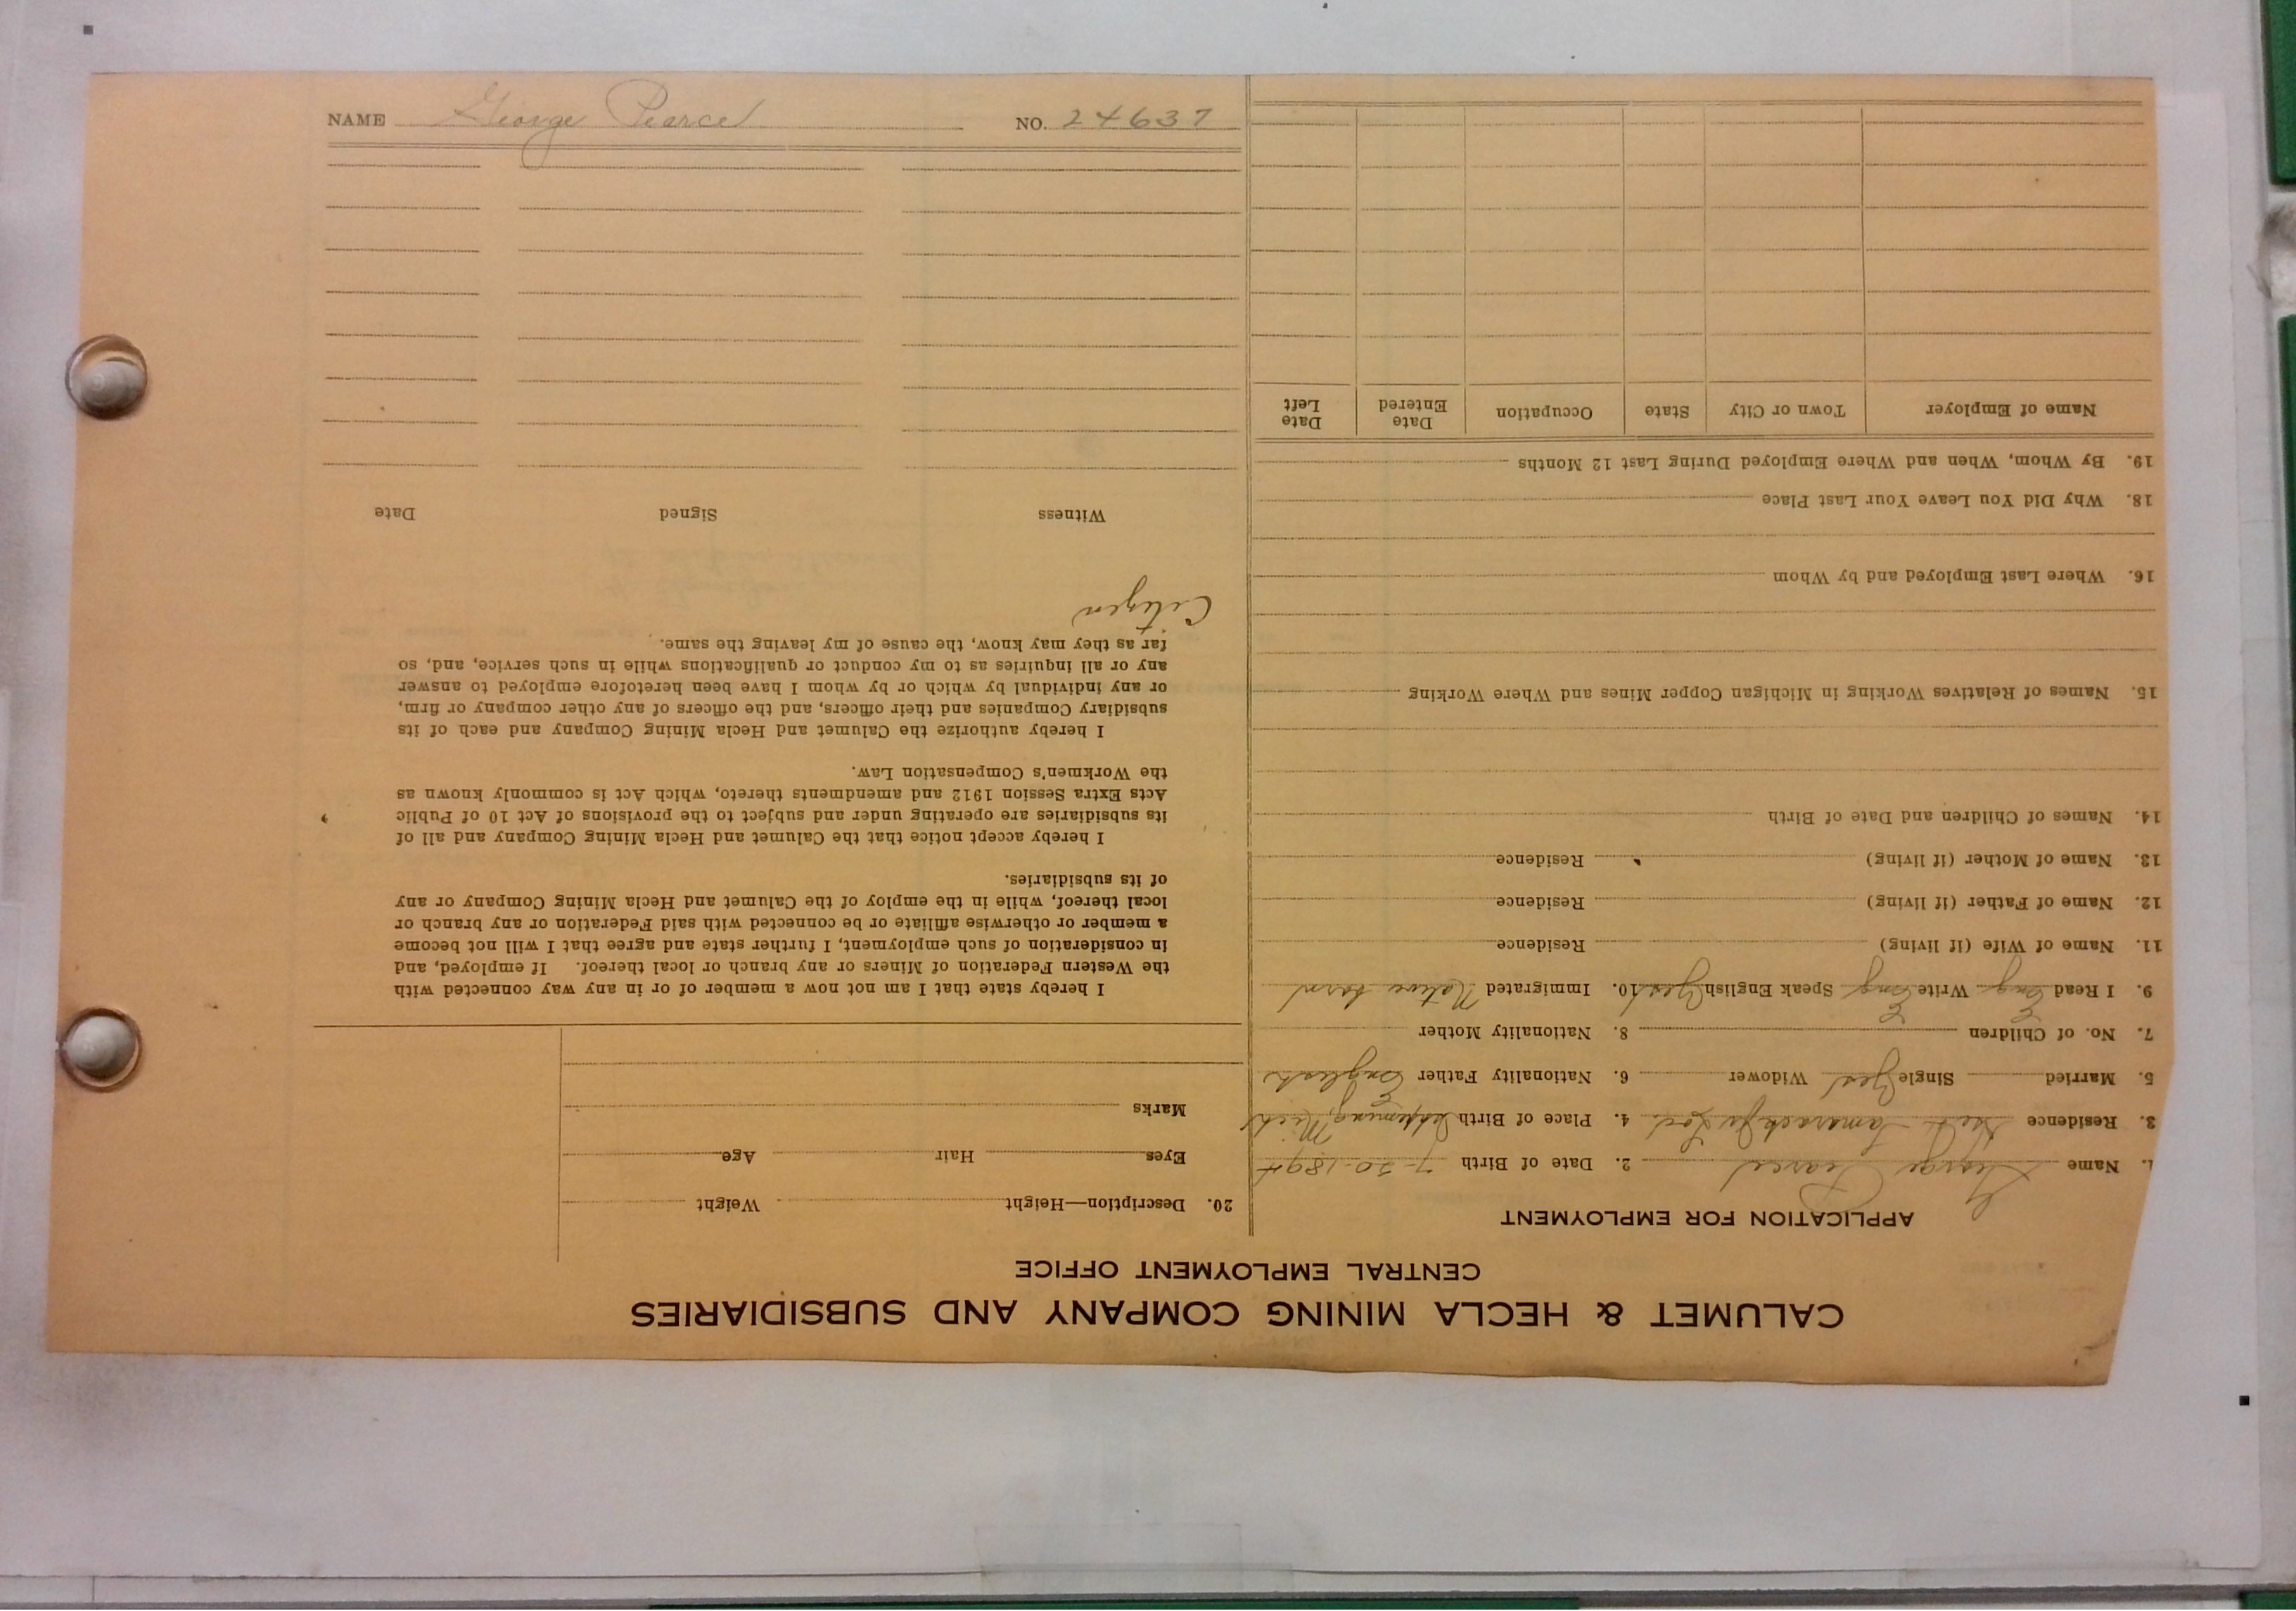 NAME George Pearce NO. 24637
CALUMET & HECLA MINING COMPANY AND SUBSIDIARIES
CENTRAL EMPLOYMENT OFFICE
APPLICATION FOR EMPLOYMENT
1. Name George Pearce 2. Date of Birth 7-30-1894
3. Residence Tamarack Jr Loc. 4. Place of Birth Ishpeming, Mich
5. Married Single Yes Widower 6. Nationality Father English
7. No. of Children 8. Nationality Mother
9. I Read Eng Write Eng Speak English Yes 10. Immigrated Native born
11. Name of Wife (if living) Residence
12. Name of Father (if living) Residence
13. Name of Mother (if living) Residence
14. Names of Children and Date of Birth
15. Names of Relatives Working in Michigan Copper Mines and Where Working
16. Where Last Employed and by Whom
18. Why Did You Leave Your Last Place
19. By Whom, When and Where Employed During Last 12 Months
Name of Employer Town or City State Occupation Date Entered Date Left
20. Description—Height Weight
Eyes Hair Age
Marks
I hereby state that I am not now a member of or in any way connected with
the Western Federation of Miners or any branch or local thereof. If employed, and
in consideration of such employment, I further state and agree that I will not become
a member or otherwise affiliate or be connected with said Federation or any branch or
local thereof, while in the employ of the Calumet and Hecla Mining Company or any
of its subsidiaries.
I hereby accept notice that the Calumet and Hecla Mining Company and all of
its subsidiaries are operating under and subject to the provisions of Act 10 of Public
Acts Extra Session 1912 and amendments thereto, which Act is commonly known as
the Workmen's Compensation Law.
I hereby authorize the Calumet and Hecla Mining Company and each of its
subsidiary Companies and their officers, and the officers of any other company or firm,
or any individual by which or by whom I have been heretofore employed to answer
any or all inquiries as to my conduct or qualifications while in such service, and, so
far as they may know, the cause of my leaving the same.
Citizen
Witness Signed Date